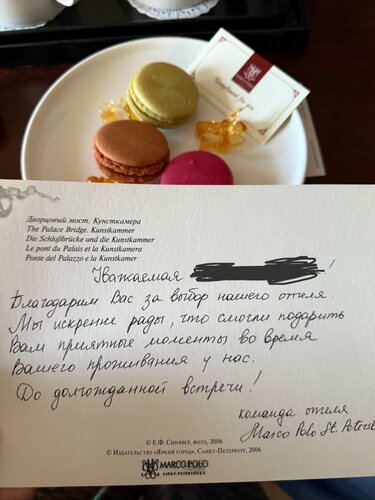 Compliment for you
Дворцовый мост. Кунсткамера
The Palace Bridge. Kunstkammer
Die Schloßbrücke und die Kunstkammer
Le pont du Palais et la Kunstkamera
Ponte del Palazzo e la Kunstkamer
Уважаемая !
Благодарим Вас за выбор нашего отеля.
Мы искренне рады, что смогли подарить
Вам приятные моменты во время
Вашего проживания у нас.
До долгожданной встречи!
команда отеля
Marco Polo St. Petersb
© Е.Ф. Синявер, фото, 2006
© Издательство «Яркий город», Санкт-Петербург, 2006
MARCO POLO
САНКТ-ПЕТЕРБУРГ